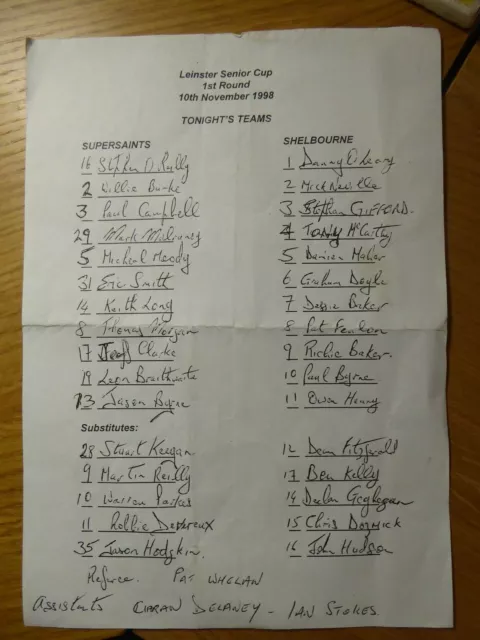 Leinster Senior Cup
1st Round
10th November 1998
TONIGHT'S TEAMS
SUPERSAINTS
16 Stephen O.Reilly
2 Willie Burke
3 Paul Campbell
29 Mark
5 Micheal Moody
31 Eric Smith
14 Keith Long
8 Thomas Morgan
17 Jeff Clarke
19 Leon Braithwaite
13 Jason Byrne
Substitutes:
28 Stuart Keegan.
9 Martin Reilly
10 Warren Parkes
11 Robbie Devereux
35 Jason Hodgkin.
SHELBOURNE
1 Danny O'Leary
2 Mick Neville
3 Stephen GIFFORD.
4 Tony McCarthy
5 Damien Maher
6 Graham Doyle
7 Dessie Baker
8 Pat Fenlon
9 Richie Baker.
10 Paul Byrne
11 Owen Heary
12 Dean Fitzgerald
13 Ben Kelly
14 Declan Geoghegan
15 Chris
16 John Hudson
Referee. PAT WHELAN
Assistants CIARAN DELANEY - IAN STOKES.